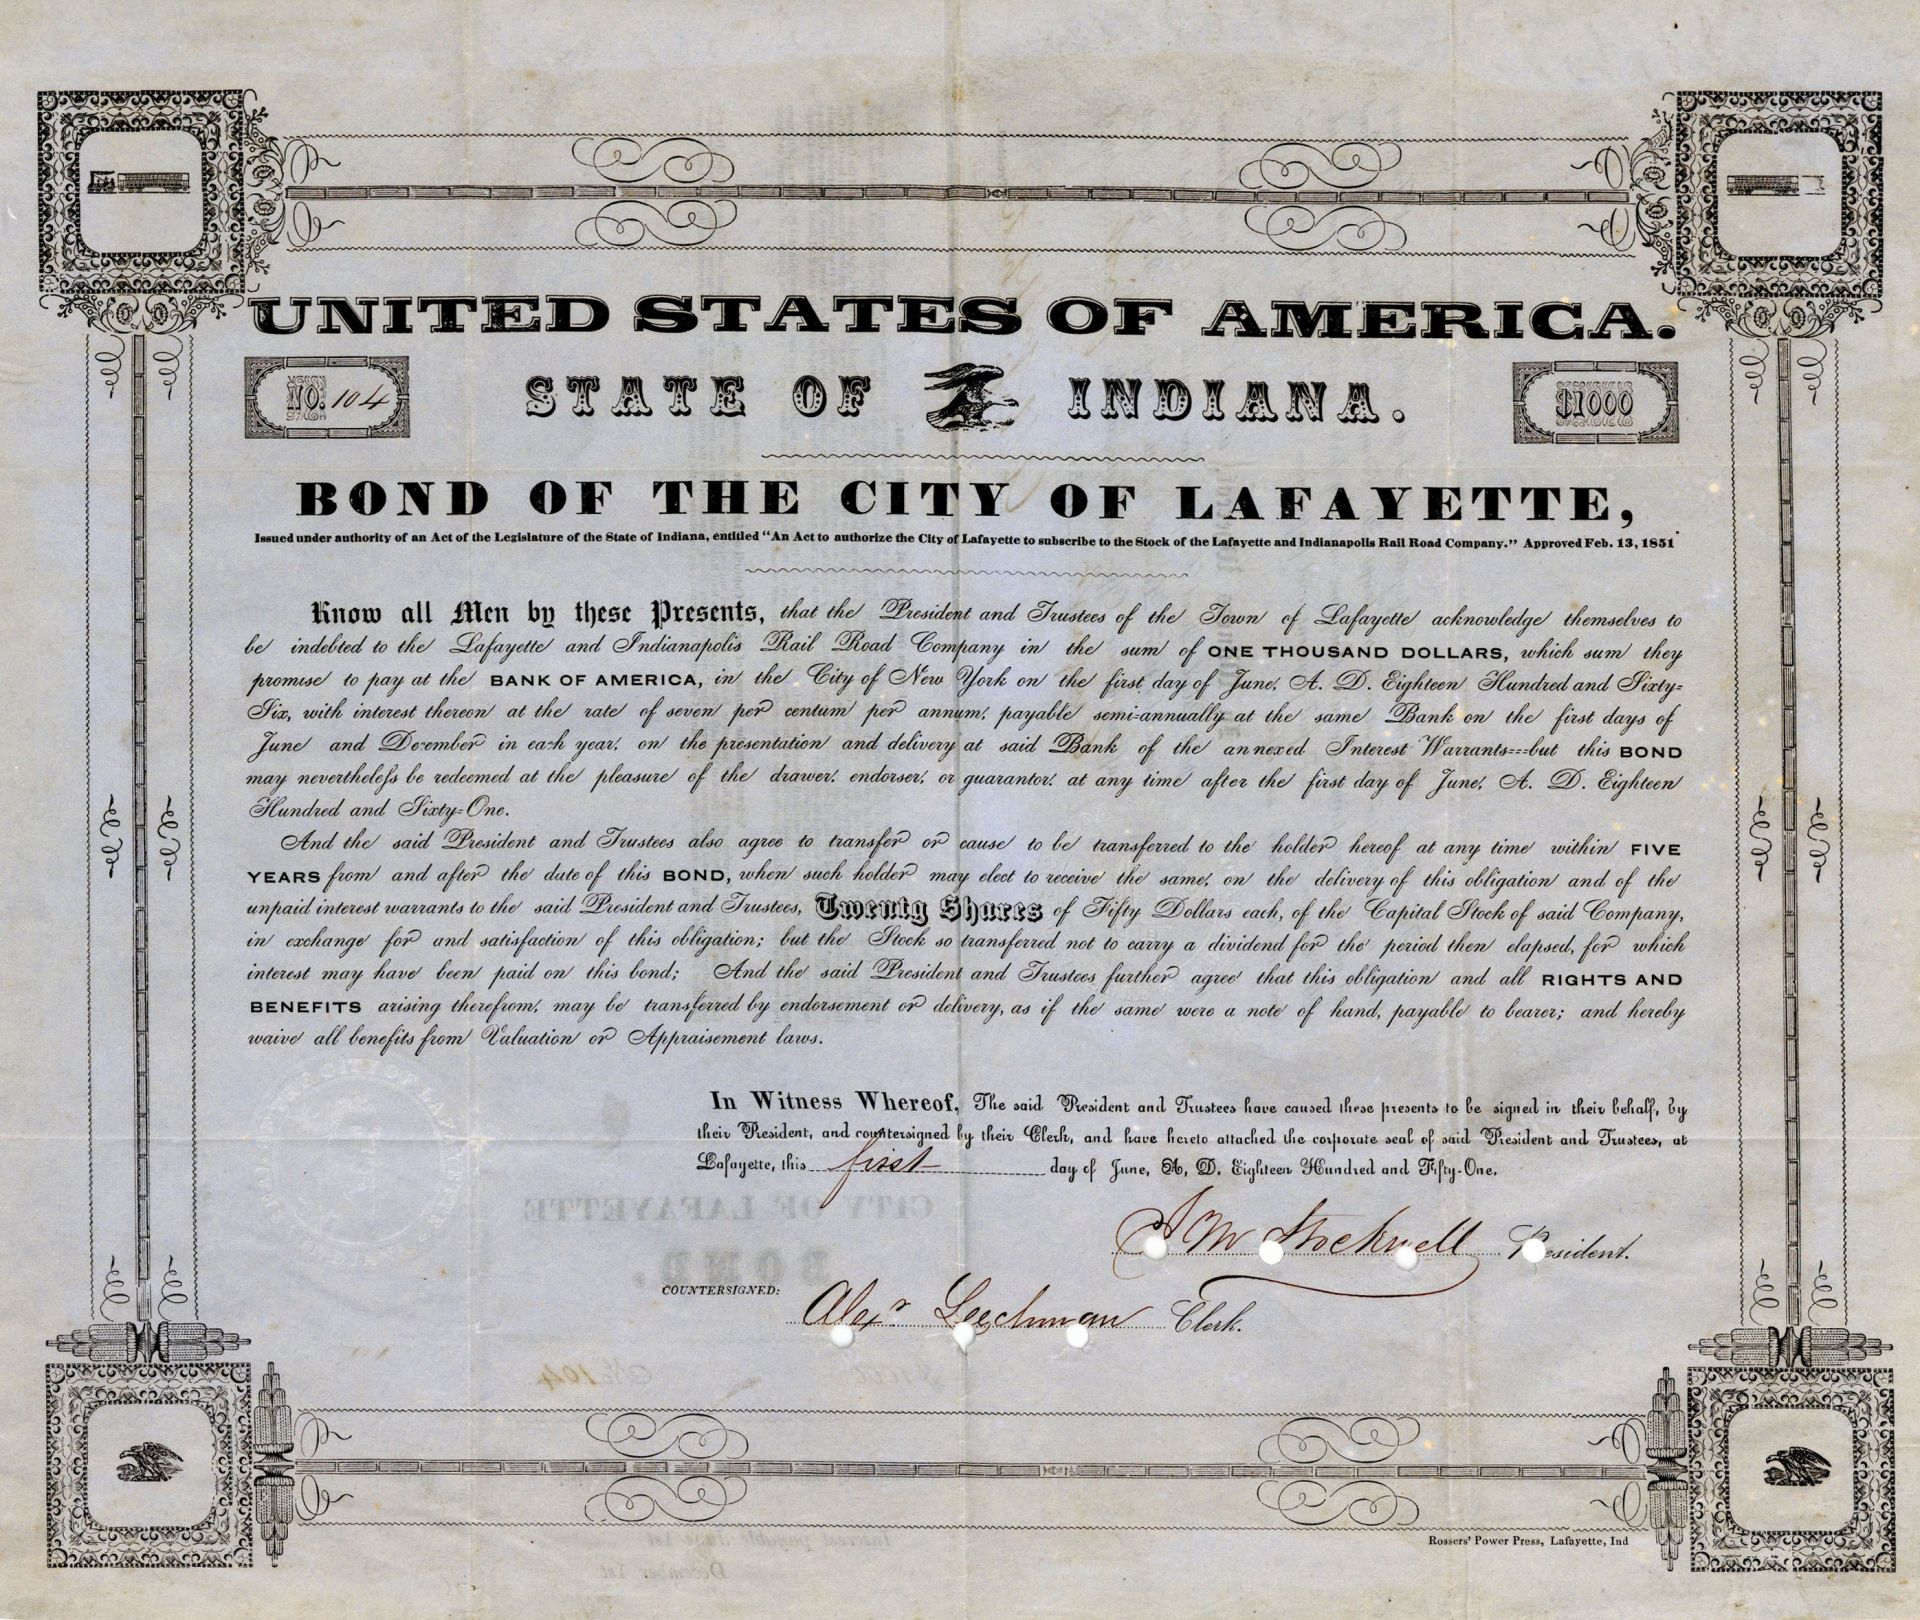 UNITED STATES OF AMERICA.
NO. 104
STATE OF INDIANA.
$1000
BOND OF THE CITY OF LAFAYETTE,
Issued under authority of an Act of the Legislature of the State of Indiana, entitled "An Act to authorize the City of Lafayette to subscribe to the Stock of the Lafayette and Indianapolis Rail Road Company." Approved Feb. 13, 1851
Know all Men by these Presents, that the President and Trustees of the Town of Lafayette acknowledge themselves to
be indebted to the Lafayette and Indianapolis Rail Road Company in the sum of ONE THOUSAND DOLLARS, which sum they
promise to pay at the BANK OF AMERICA, in the City of New York on the first day of June, A. D. Eighteen Hundred and Sixty-
Six, with interest thereon at the rate of seven per centum per annum, payable semi-annually at the same Bank on the first days of
June and December in each year, on the presentation and delivery at said Bank of the annexed Interest Warrants---but this BOND
may nevertheless be redeemed at the pleasure of the drawer, endorser, or guarantor, at any time after the first day of June, A. D. Eighteen
Hundred and Sixty-One.
And the said President and Trustees also agree to transfer or cause to be transferred to the holder hereof at any time within FIVE
YEARS from and after the date of this BOND, when such holder may elect to receive the same, on the delivery of this obligation and of the
unpaid interest warrants to the said President and Trustees, Twenty Shares of Fifty Dollars each, of the Capital Stock of said Company,
in exchange for and satisfaction of this obligation; but the Stock so transferred not to carry a dividend for the period then elapsed, for which
interest may have been paid on this bond; And the said President and Trustees further agree that this obligation and all RIGHTS AND
BENEFITS arising therefrom, may be transferred by endorsement or delivery, as if the same were a note of hand, payable to bearer; and hereby
waive all benefits from Valuation or Appraisement laws.
In Witness Whereof, The said President and Trustees have caused these presents to be signed in their behalf, by
their President, and countersigned by their Clerk, and have hereto attached the corporate seal of said President and Trustees, at
Lafayette, this first day of June, A. D. Eighteen Hundred and Fifty-One.
CITY OF LAFAYETTE
BOND.
Stockwell President.
COUNTERSIGNED:
Alexr Leechman Clerk.
104
Interest payable June 1st
December 1st
Rossers' Power Press, Lafayette, Ind